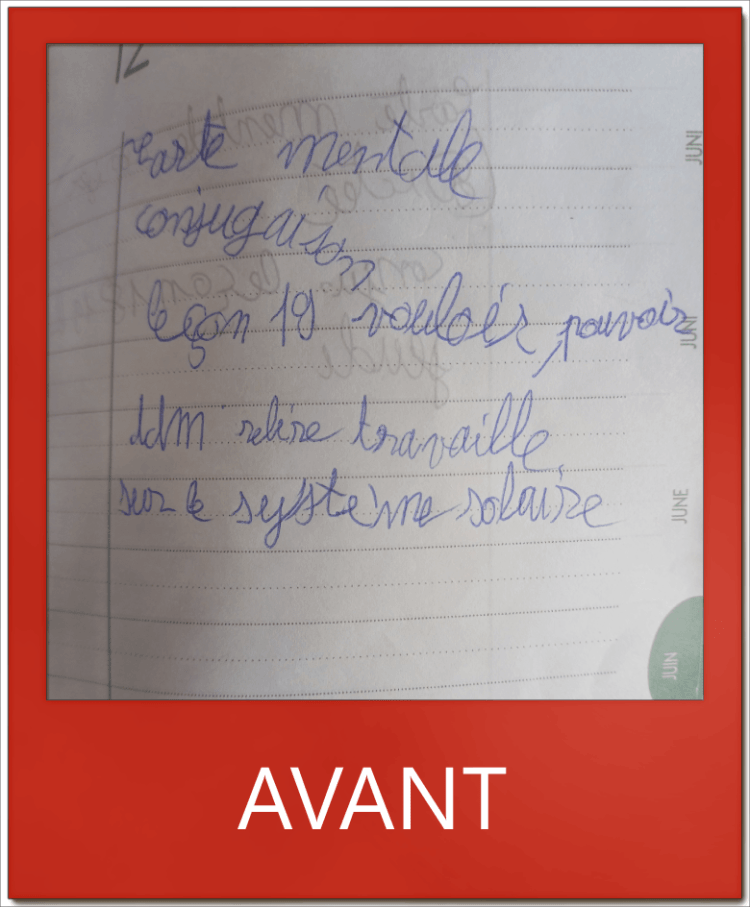 12
Carte mentale
conjugaison
leçon 19 vouloir, pouvoir
ddm relire travaille
sur le système solaire
JUNI
JUNI
JUNE
JUIN
AVANT